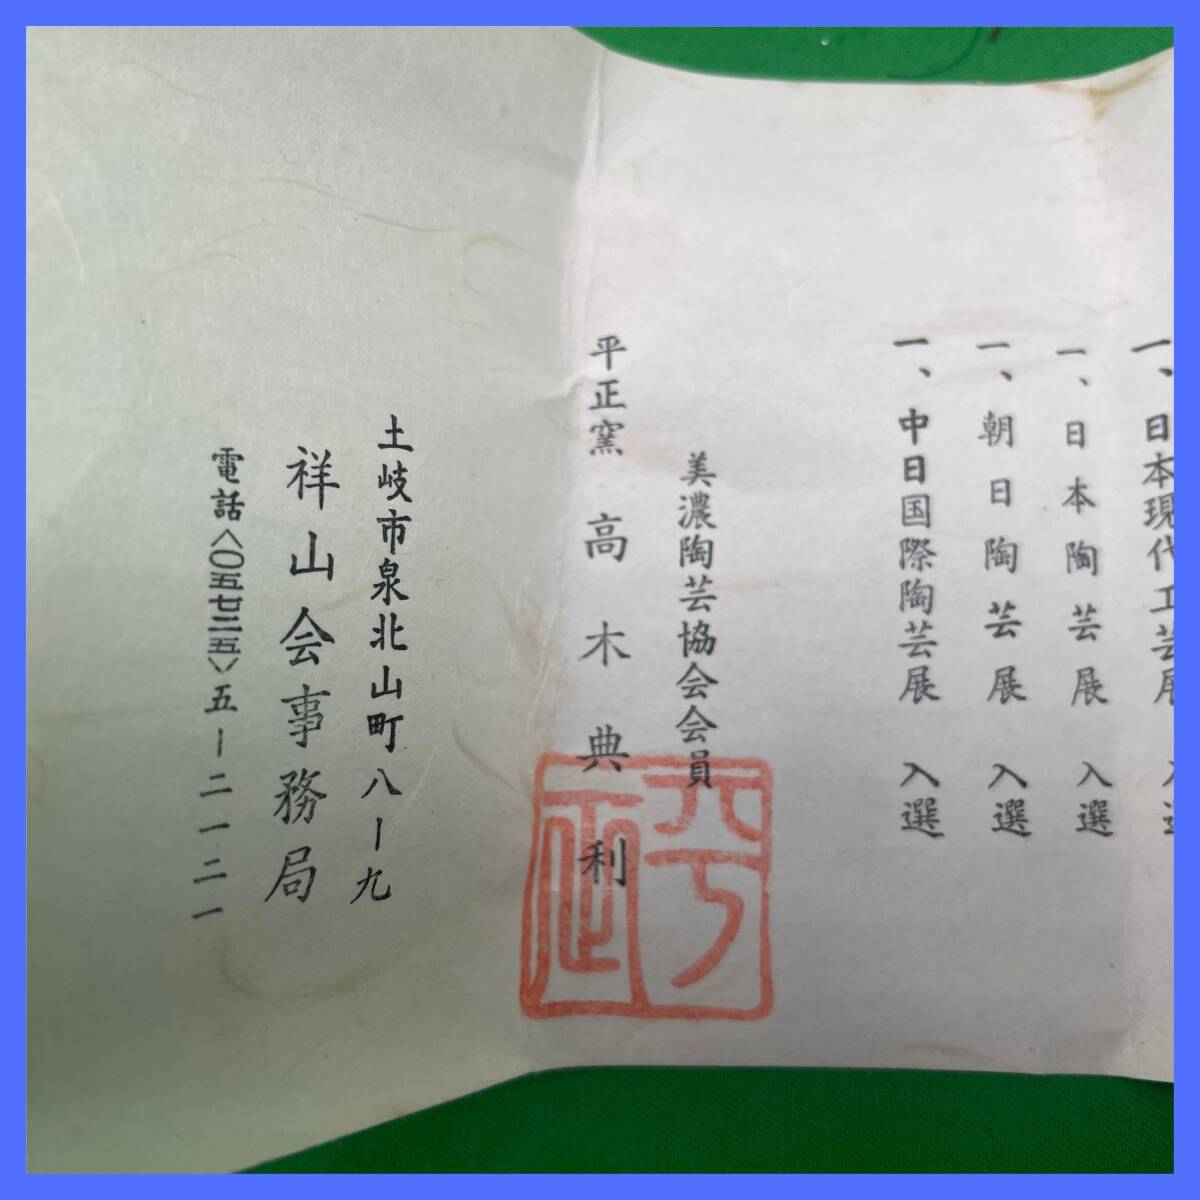 一、日本現代工芸展 入選
一、日本陶芸展 入選
一、朝日陶芸展 入選
一、中日国際陶芸展 入選
美濃陶芸協会会員
平正窯 高木典利
土岐市泉北山町八ー九
祥山会事務局
電話〈〇五七二五〉五ー二一二一